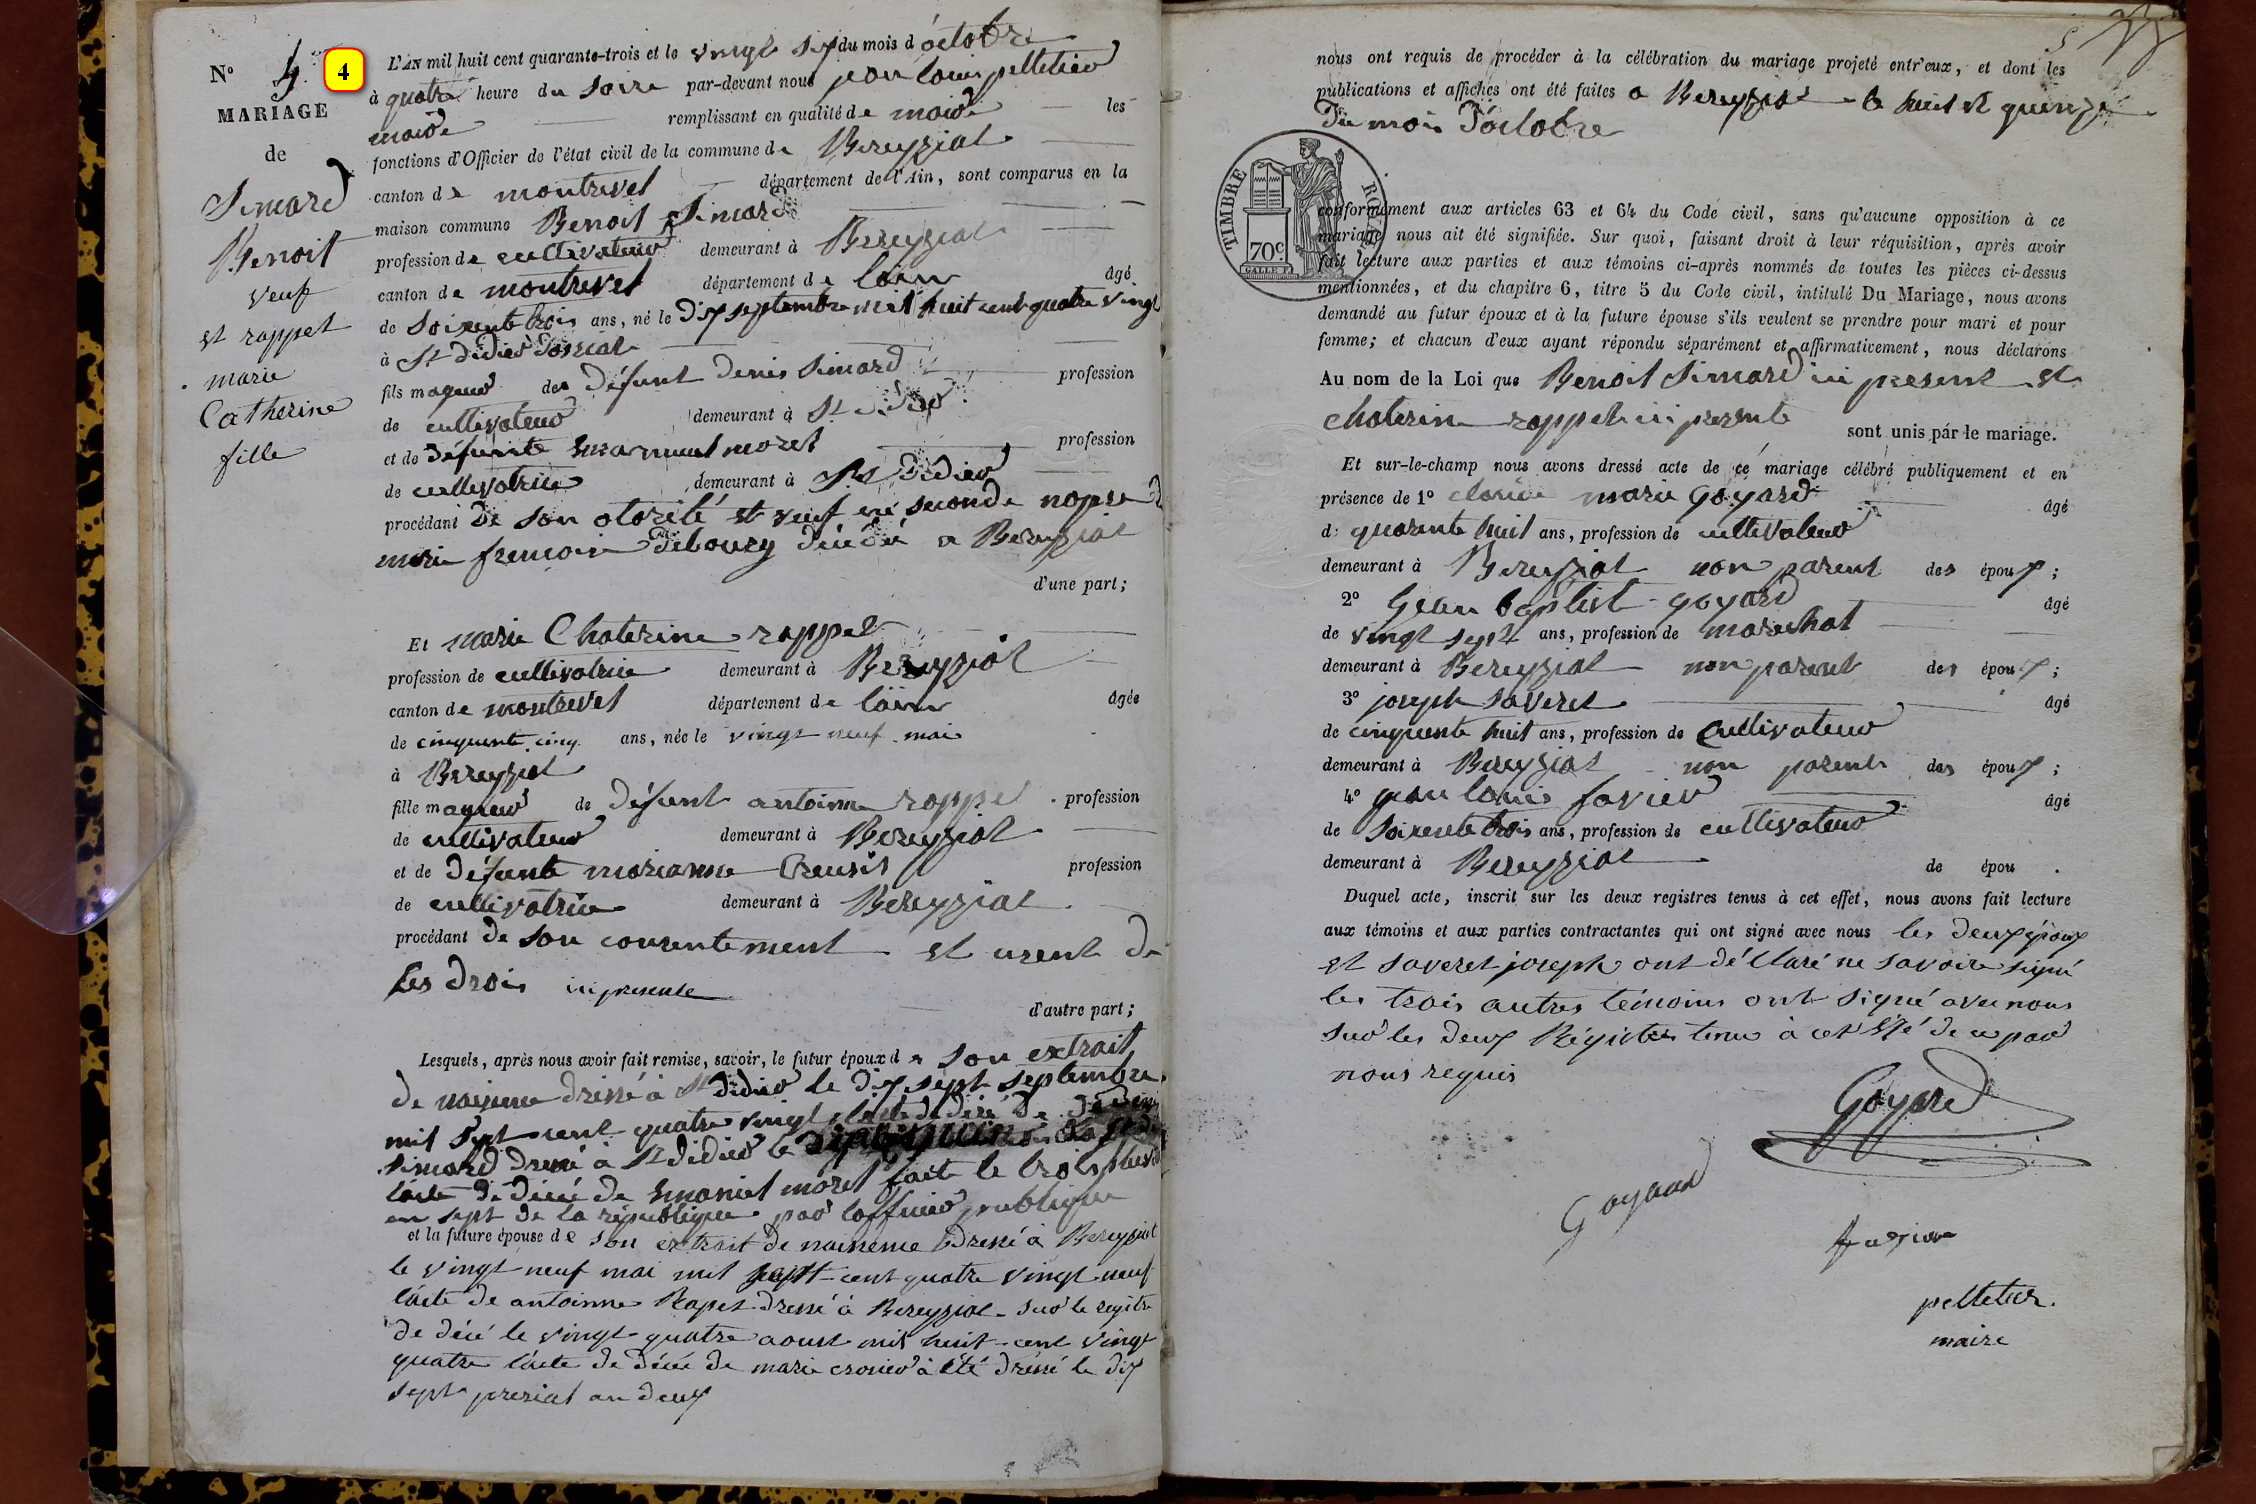 N° 4. 4
MARIAGE
de
Simard
Benoit
veuf
et rappet
marie
Catherine
fille
L'AN mil huit cent quarante-trois et le vingt six du mois d'octobre
à quatre heure du soire par-devant nous jean louis pelletier
maire remplissant en qualité de maire les
fonctions d'Officier de l'état civil de la commune de Bereyziat
canton de montrevel département de l'Ain, sont comparus en la
maison commune Benoit Simard
profession de cultivateur demeurant à Bereyziat
canton de montrevel département de lain âgé
de soixente trois ans, né le dix septembre mil huit cent quatre vingt
à St didier
fils mageur de défunt denis Simard profession
de cultivateur demeurant à St didier
et de défunte morel profession
de cultivatrice demeurant à St didier
procédant de son otorité et veuf en seconde nopse d
marie francoise debourg décédé a Bereyziat
d'une part;
Et marie Chaterine rappet
profession de cultivatrice demeurant à Bereyziat
canton de montrevel département de lain âgée
de cinquente cinq ans, née le vingt neuf mai
à Bereyziat
fille mageur de défunt antoinne rappet profession
de cultivateur demeurant à Bereyziat
et de défunte marianne profession
de cultivatrice demeurant à Bereyziat
procédant de son consentement et usent de
ses drois ici presente
d'autre part;
Lesquels, après nous avoir fait remise, savoir, le futur époux de son extrait
de naisence dressé à St didier le dix sept septembre
mil sept cent quatre vingt lacte de décé de
Simard dressé à St didier le
lacte de décé de morel fait le trois
an sept de la république par loffficier publique
et la future épouse de son extrait de naisence dressé à Bereyziat
le vingt neuf mai mil sept cent quatre vingt neuf
lacte de antoinne Rapet dressé à Bereyziat sur le regitre
de décé le vingt quatre aoust mil huit cent vingt
quatre lacte de décé de marie à été dréssé le dix
sept prerial an deux
5
nous ont requis de procéder à la célébration du mariage projeté entr'eux, et dont les
publications et affiches ont été faites a Bereyziat le huit et quinze
du mois d'octobre
TIMBRE ROYAL
70c
conformément aux articles 63 et 64 du Code civil, sans qu'aucune opposition à ce
mariage nous ait été signifiée. Sur quoi, faisant droit à leur réquisition, après avoir
fait lecture aux parties et aux témoins ci-après nommés de toutes les pièces ci-dessus
mentionnées, et du chapitre 6, titre 5 du Code civil, intitulé Du Mariage, nous avons
demandé au futur époux et à la future épouse s'ils veulent se prendre pour mari et pour
femme; et chacun d'eux ayant répondu séparément et affirmativement, nous déclarons
Au nom de la Loi que Benoit Simard ici present et
chaterine rappet ici presente sont unis par le mariage.
Et sur-le-champ nous avons dressé acte de ce mariage célébré publiquement et en
présence de 1° marie Goyard âgé
d quarente huit ans, profession de cultivateur
demeurant à Bereyziat non parent des époux;
2° Gean baptist goyard âgé
de vingt sept ans, profession de marechal
demeurant à Bereyziat non parent des époux;
3° joseph saveret âgé
de cinquente huit ans, profession de Cultivateur
demeurant à Bereyziat non parent des époux;
4° gean louis favier âgé
de soixente trois ans, profession de cultivateur
demeurant à Bereyziat de épou .
Duquel acte, inscrit sur les deux registres tenus à cet effet, nous avons fait lecture
aux témoins et aux parties contractantes qui ont signé avec nous les deux époux
et saveret joseph ont déclaré ne savoire signé
les trois autres témoins ont signé avec nous
sur les deux Régistres tenu à cet éfé de ce par
nous requis
Goyard
Goyard
favier
pelletier.
maire